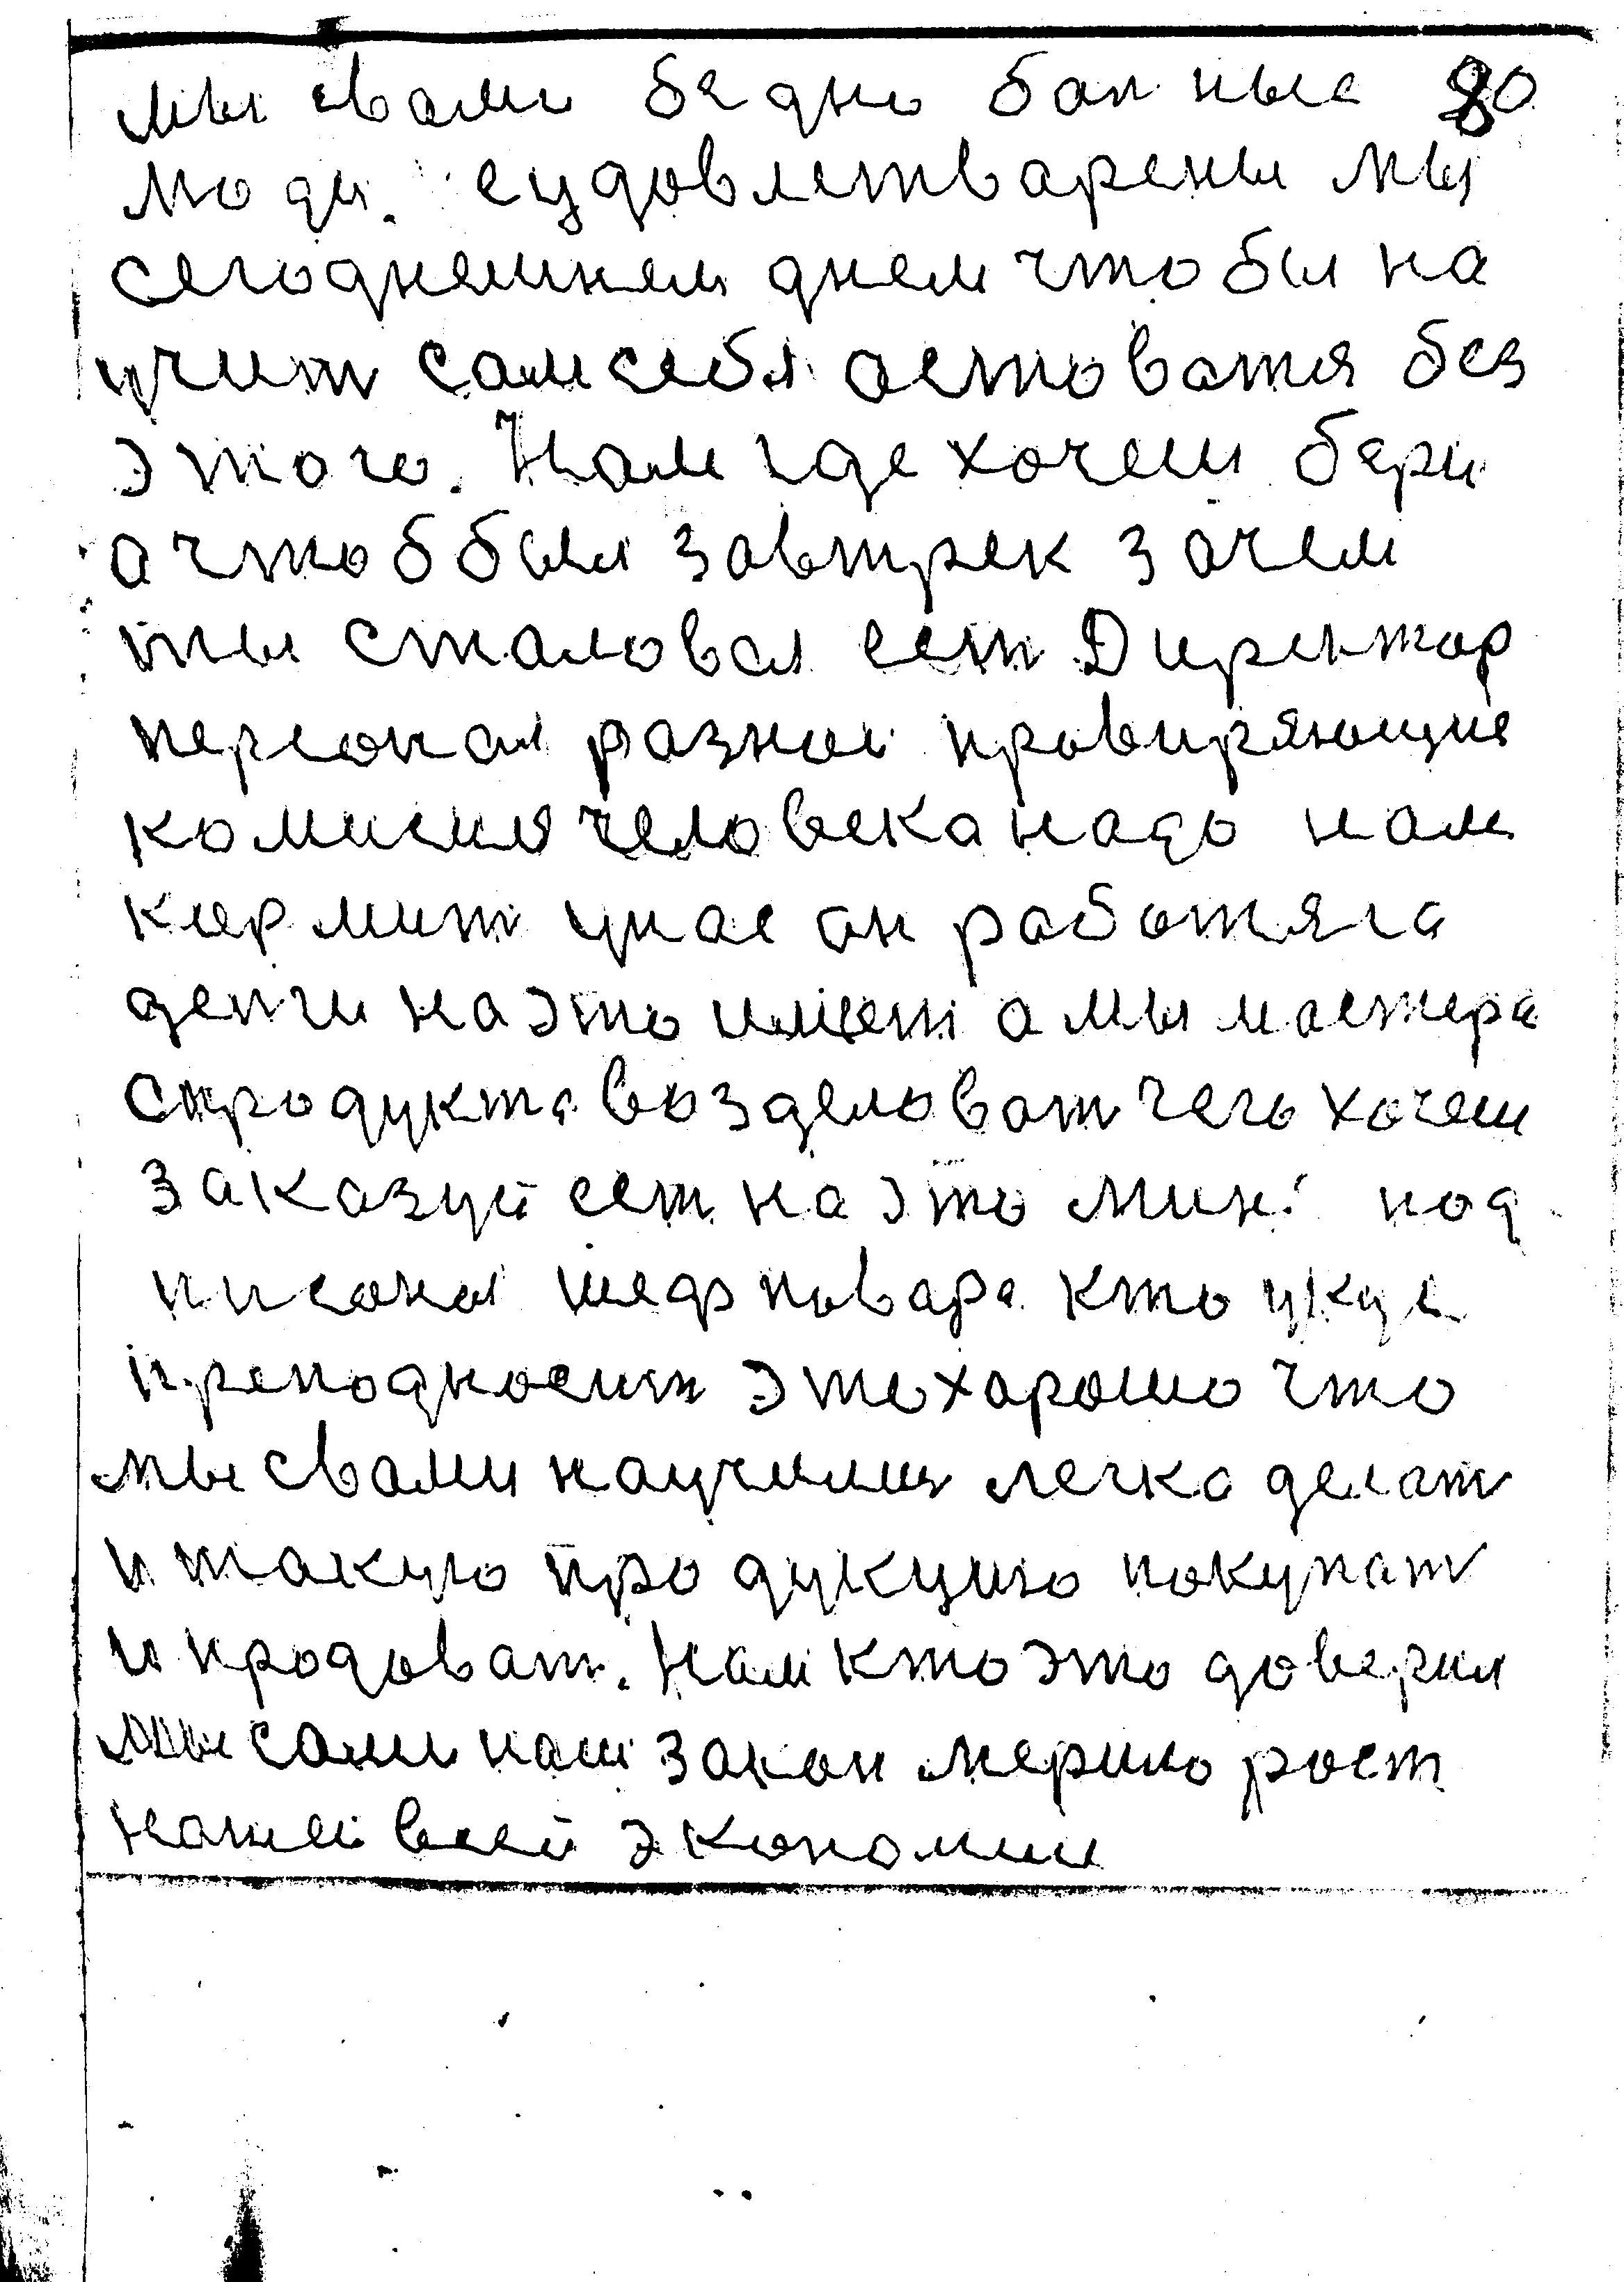 мы свами бедно болные 80
люди. еудовлетварены мы
сегоднешнем днем что бы на
учит сам себя астоватся без
этого. Нам где хочеш бери
а чтоб был завтрек зачем
ты сталовая ест Директор
персонал разной правиряющие
комисия человека надо нам
кормит унас он работяга
денги на это имеет а мы мастера
спродуктавозделоват чего хочеш
заказуй ест на это мин. под
писаная шефповара кто уже
преподносит это хорошо что
мы свами научились легко делат
и такую продукцию покупат
и продоват. Нам кто это доверил
мы сами наш закон мерило рост
нашей всей экономии